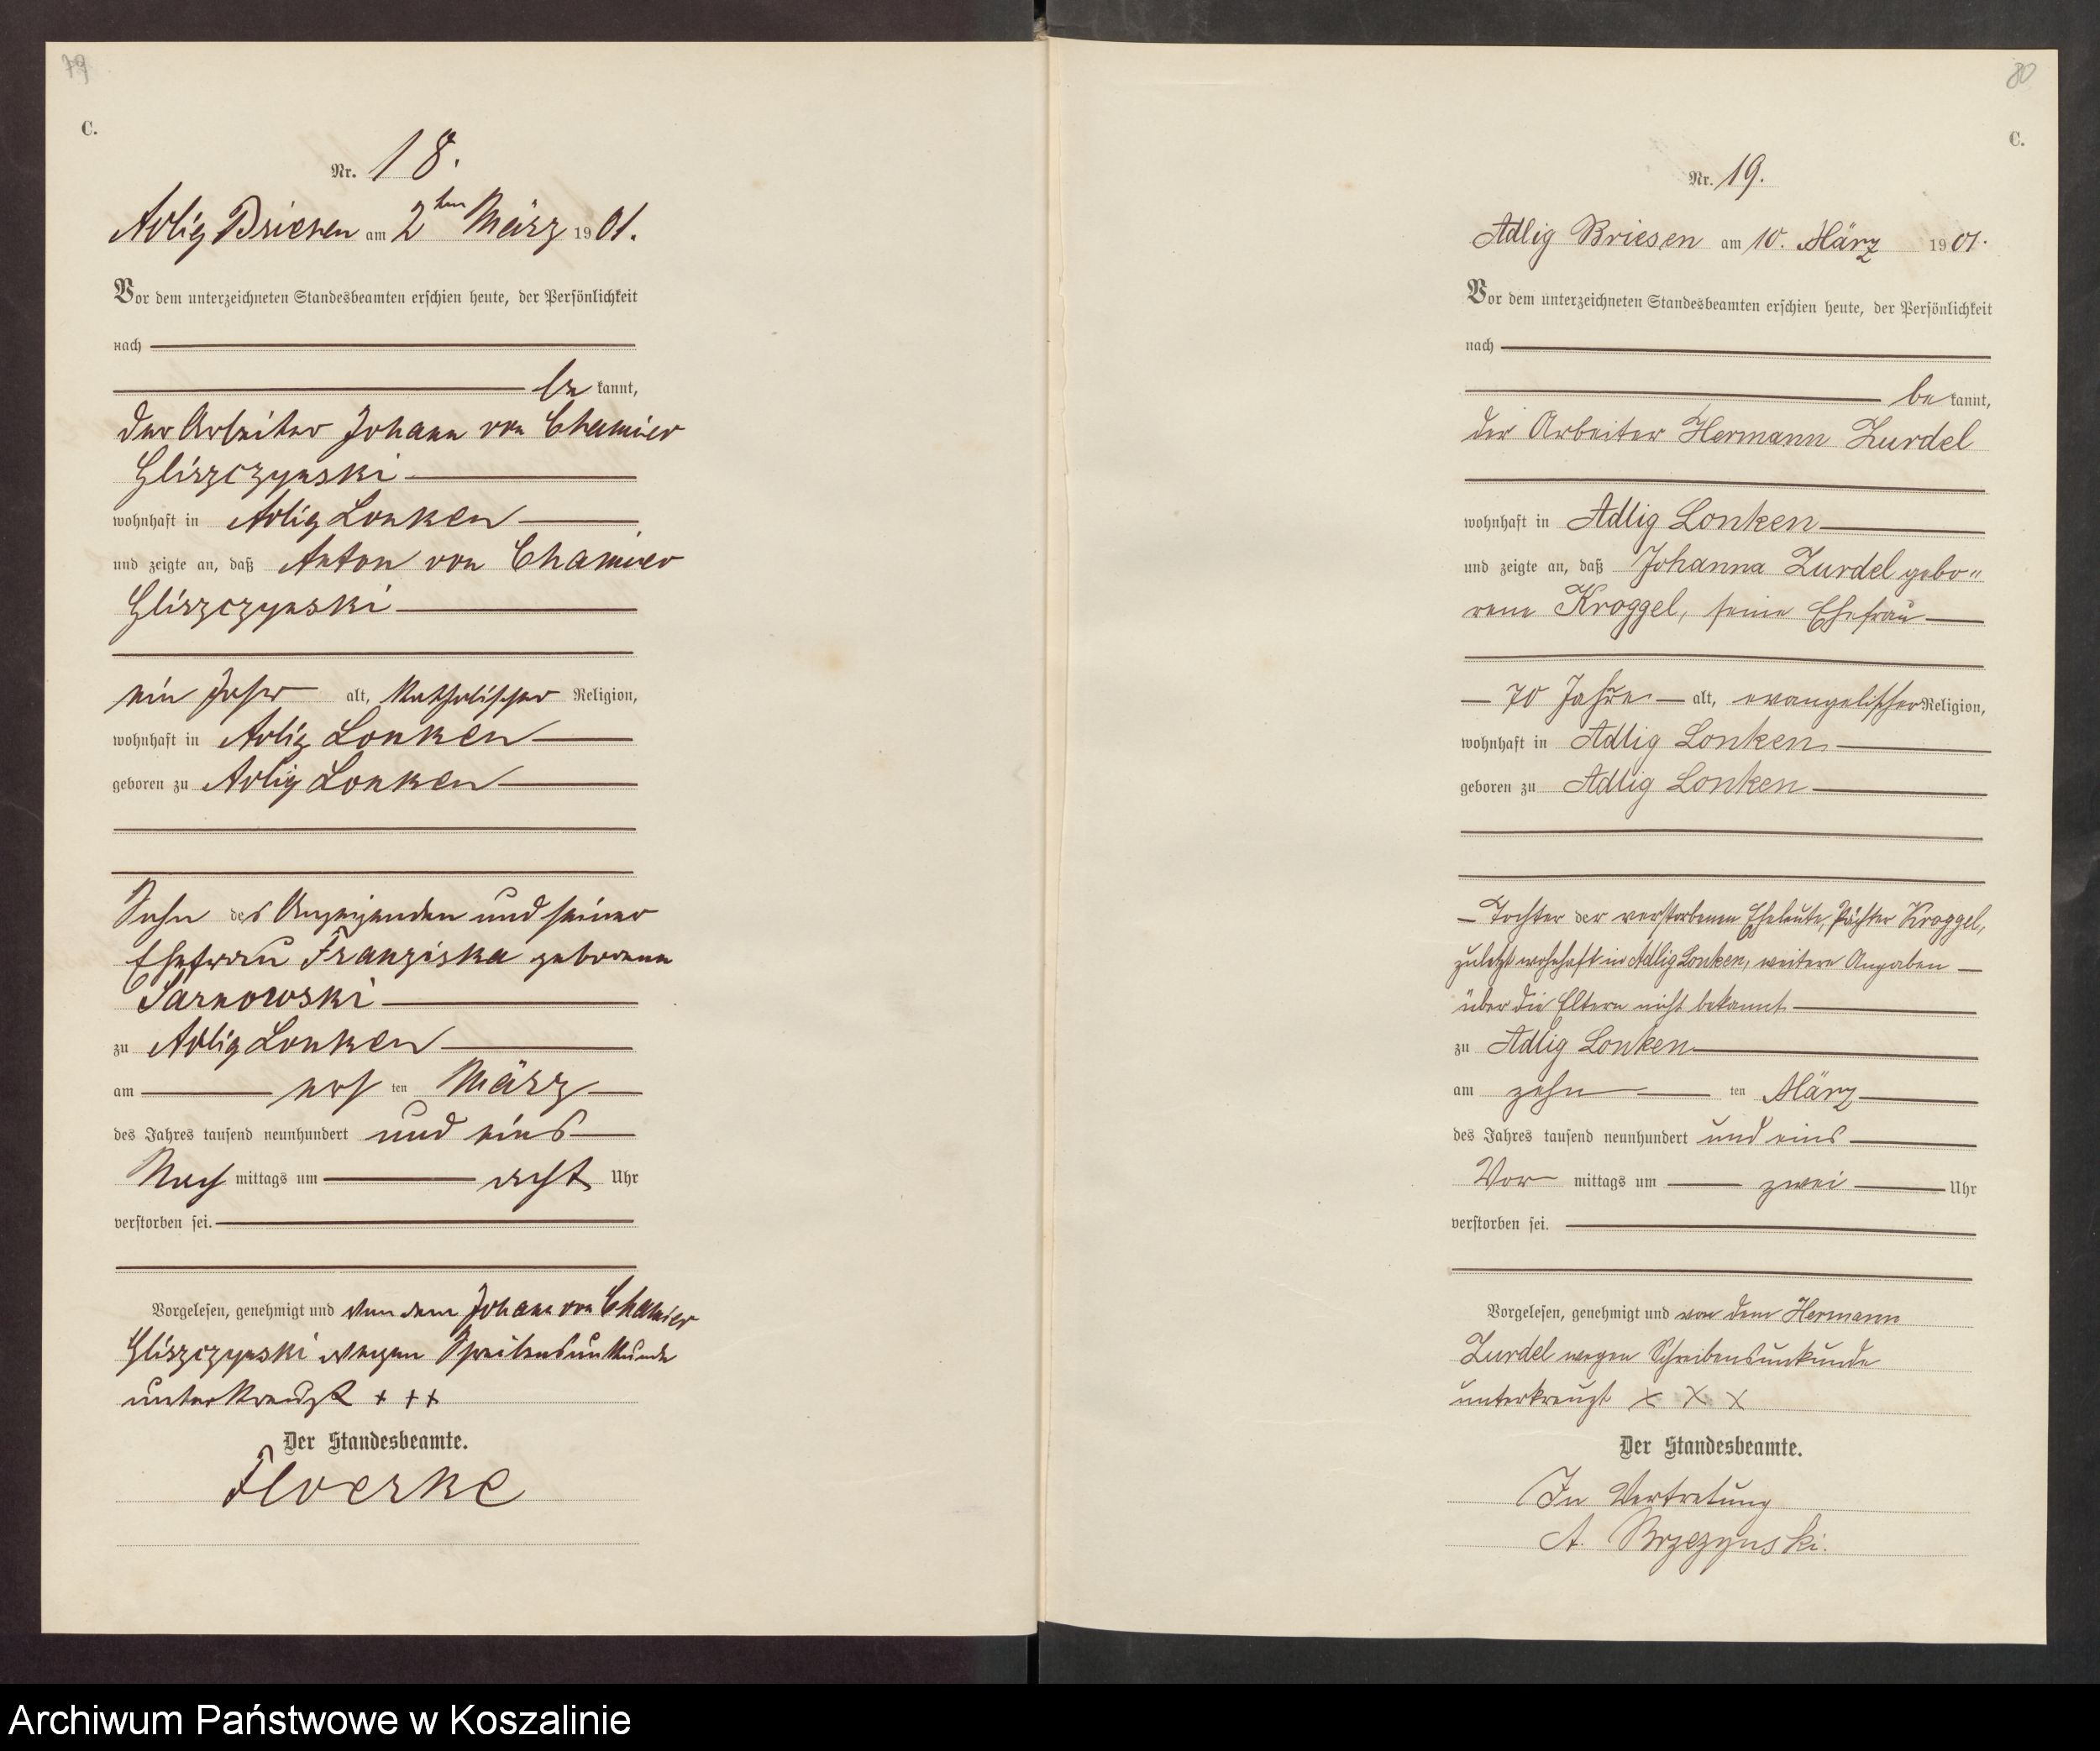 79
C.
Nr. 18.
Adlig Briesen am 2ten März 1901.
Vor dem unterzeichneten Standesbeamten erschien heute, der Persönlichkeit
nach
be kannt,
der Arbeiter Johann von Chamier
Gliszczynski
wohnhaft in Adlig Lonken
und zeigte an, daß Anton von Chamier
Gliszczynski
ein Jahr alt, katholischer Religion,
wohnhaft in Adlig Lonken
geboren zu Adlig Lonken
Sohn des Anzeigenden und seiner
Ehefrau Franziska geborene
Sarnowski
zu Adlig Lonken
am ers ten März
des Jahres tausend neunhundert und eins
Nach mittags um acht Uhr
verstorben sei.
Vorgelesen, genehmigt und von dem Johann von Chamier
Gliszczynski wegen Schreibensunkunde
unterkreuzt + + +
Der Standesbeamte.
Floerke
80
C.
Nr. 19.
Adlig Briesen am 10. März 1901.
Vor dem unterzeichneten Standesbeamten erschien heute, der Persönlichkeit
nach
be kannt,
der Arbeiter Hermann Zurdel
wohnhaft in Adlig Lonken
und zeigte an, daß Johanna Zurdel gebo"
rene Kroggel, seine Ehefrau
70 Jahre alt, evangelischer Religion,
wohnhaft in Adlig Lonken
geboren zu Adlig Lonken
Tochter der verstorbenen Eheleute, Pächter Kroggel,
zuletzt wohnhaft in Adlig Lonken, weitere Angaben
über die Eltern nicht bekannt
zu Adlig Lonken
am zehn ten März
des Jahres tausend neunhundert und eins
Vor mittags um zwei Uhr
verstorben sei.
Vorgelesen, genehmigt und von dem Hermann
Zurdel wegen Schreibensunkunde
unterkreuzt x x x
Der Standesbeamte.
In Vertretung
A. Brzezynski.
Archiwum Państwowe w Koszalinie